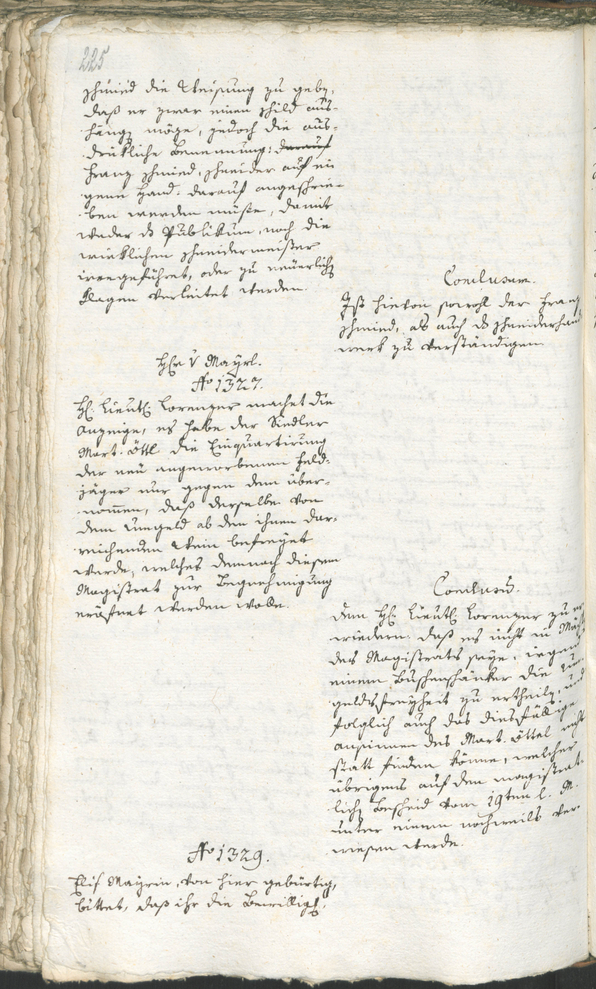 225
schmied die Weisung zu geben,
daß er zwar einen Schild aus-
hängen möge, jedoch die aus-
drükliche Benennung: darauf
Franz Schmied, Schneider auf ei-
gene Hand: darauf angeschrie-
ben werden müße, damit
weder das Publikum, noch die
wirklichen Schneidermeister
irregeführet, oder zu neuerlich
Klagen verleitet werden.
Conclusum.
Ist hievon sowohl der Franz
Schmied, als auch das Schneiderhand
werk zu verständigen.
Hr v Mayrl.
No 1327.
H: Lieut: Lorenzer machet die
Anzeige, es habe der Siedler
Mart. Öttl die Einquartirung
der neu angeworbenen Feld-
jäger nur gegen dem über-
nommen, daß derselbe von
dem Umgeld ab den ihnen dar-
reichenden Wein befreyet
werde, welches demnach diesem
Magistrat zur Begnehmigung
eröfnet werden wolle.
Conclusum.
Dem H: Lieut: Lorenzer zu er
wiedern: daß es nicht in Mach
des Magistrats seye, irgend
einem Buschenschänker die Um-
geldsfreyheit zu ertheilen, und
folglich auch das diesfällige
ansinnen des Mart. Öttel nicht
statt finden könne, welcher
übrigens auf den magistrat-
lichen Bescheid vom 19ten l. M.
unter einem nochmals ver-
wiesen werde.
No 1329.
Elis Mayrin, von hier gebürtig,
bittet, daß ihr die Bewilligg.